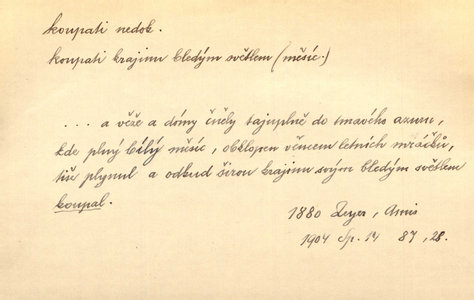 koupati nedok.
koupati krajinu bledým světlem (měsíc)
... a věže a dómy čněly tajuplně do tmavého azuru,
kde plný bílý měsíc, obklopen věncem letních mráčků,
tiše plynul a odkud šírou krajinu svým bledým světlem
koupal.
1880 Zeyer, Amis
1904 Sp. 14 87, 28.